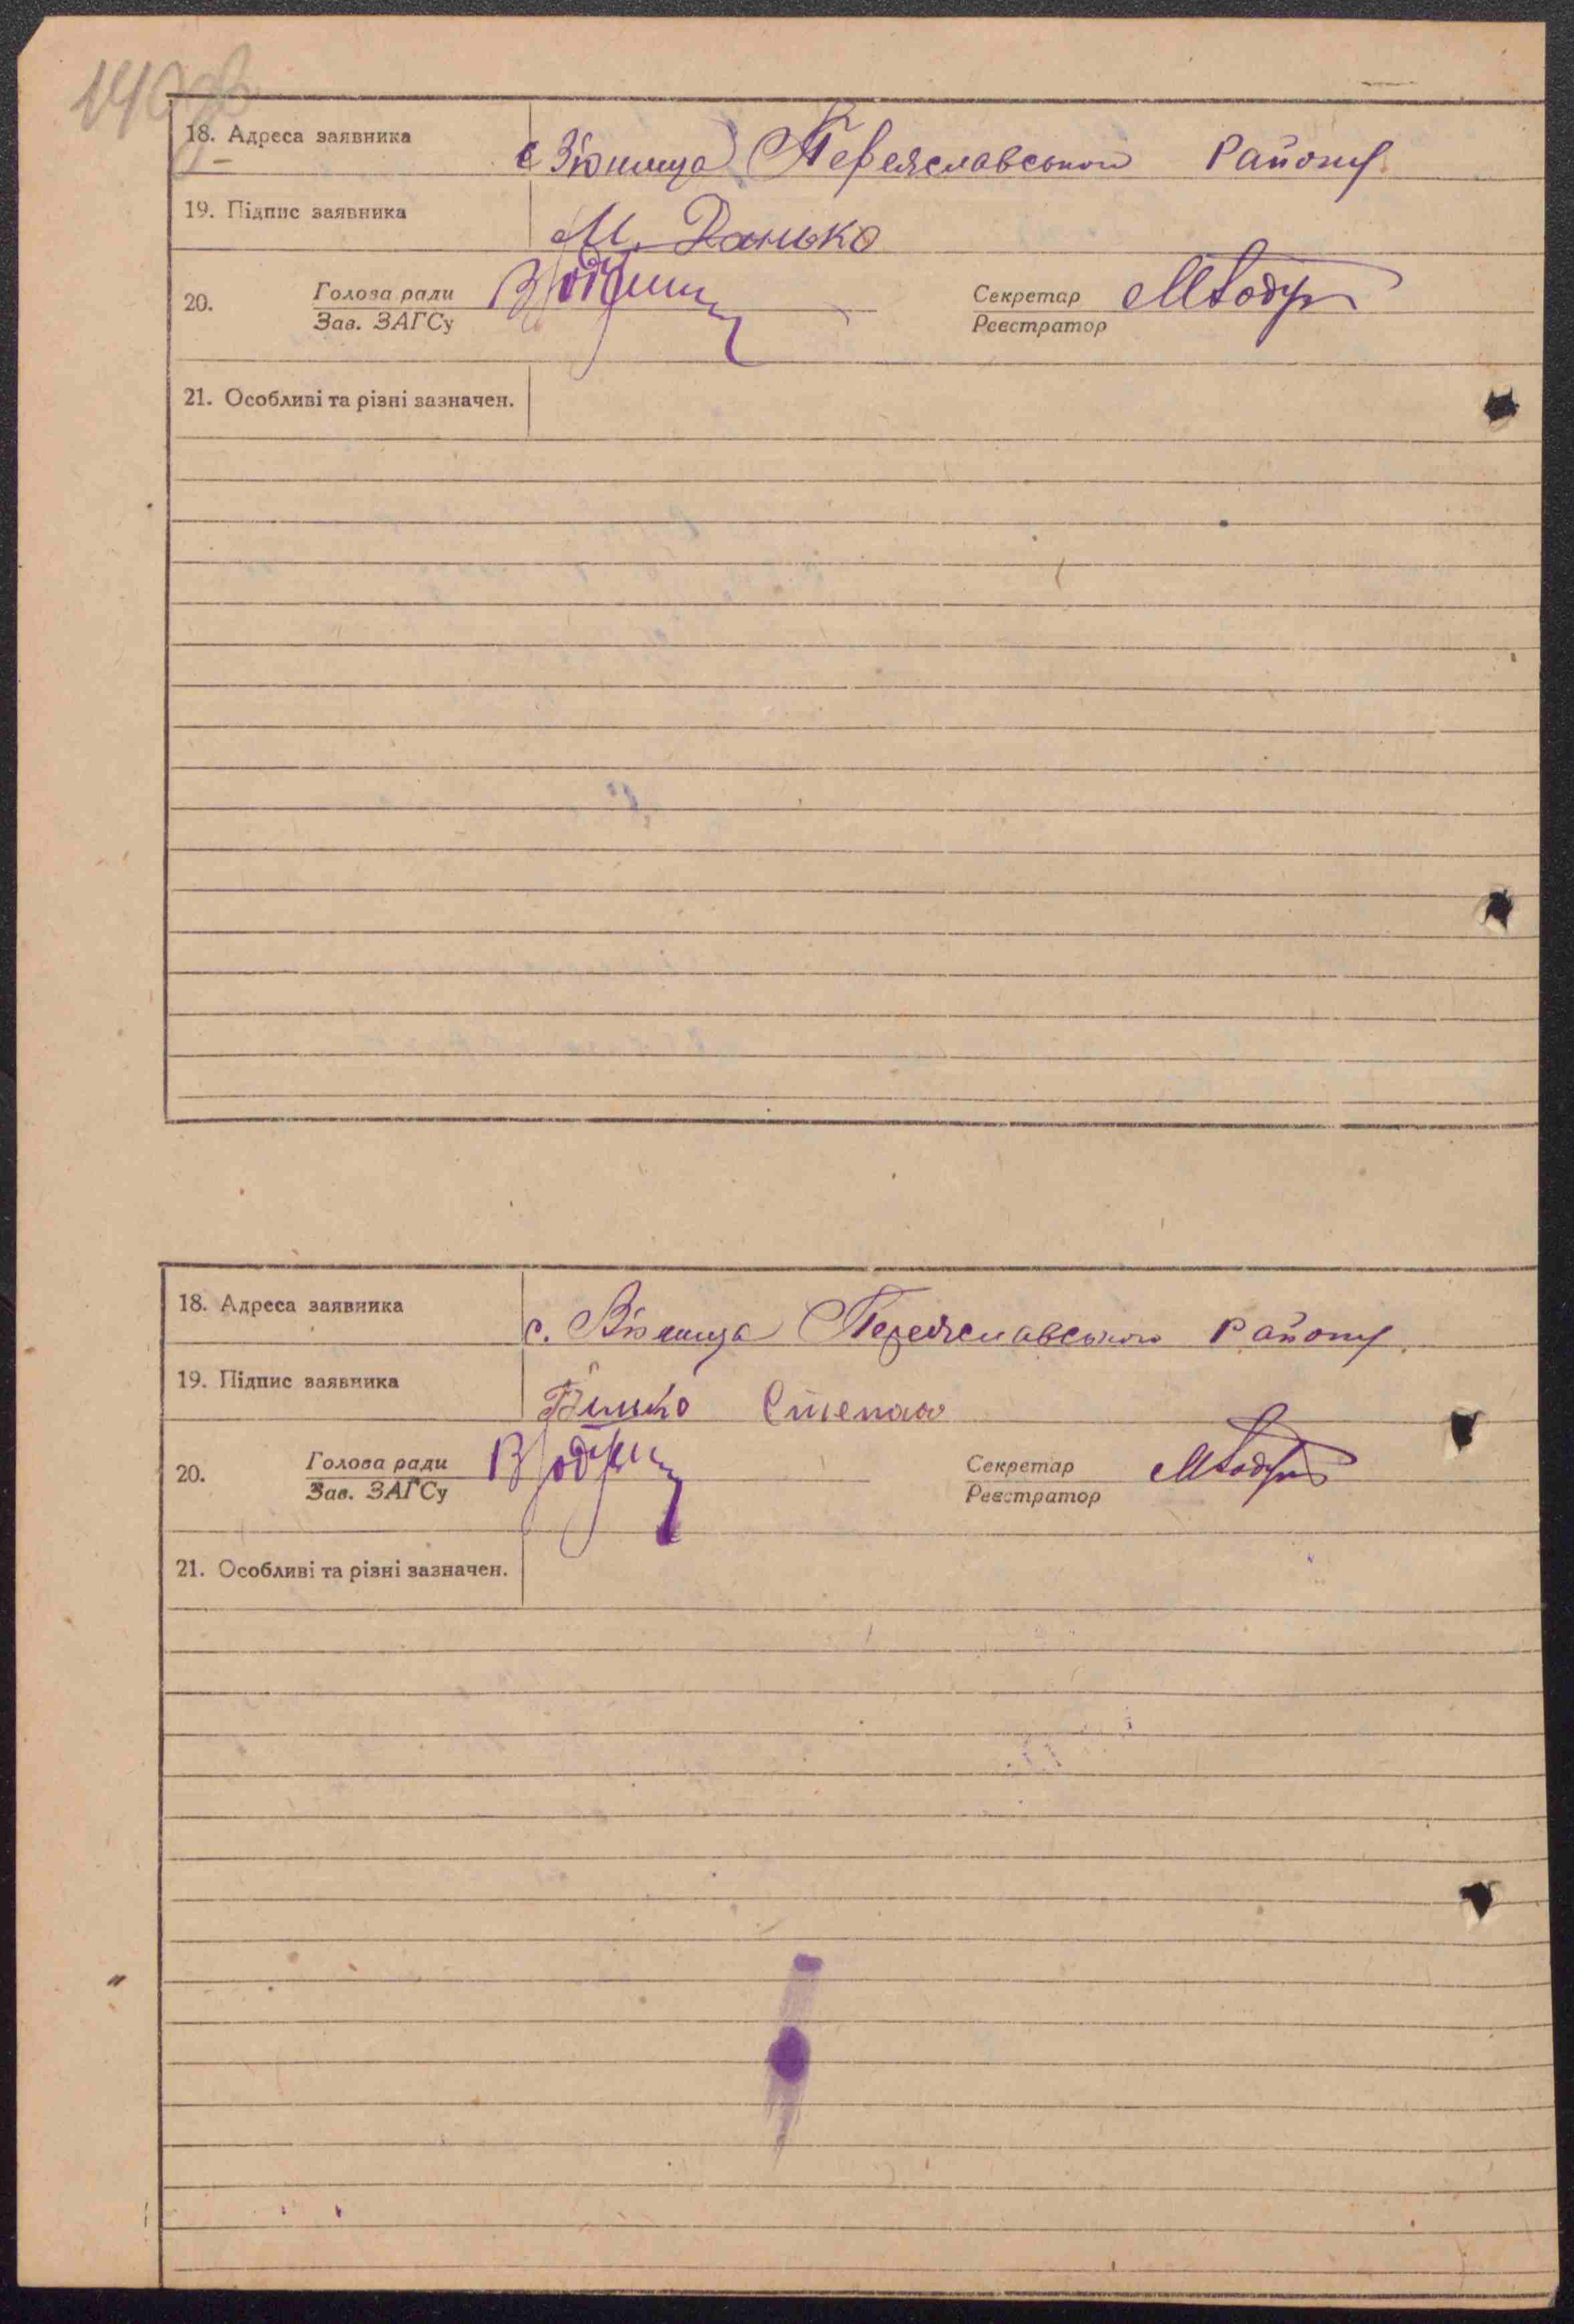 140зв
18. Адреса заявника с В'юнища Переяславського Району.
19. Підпис заявника М. Данько
20. Голова ради Секретар
Зав. ЗАГСу Реєстратор
21. Особливі та різні зазначен.
18. Адреса заявника с. В'юнища Переяславського Району.
19. Підпис заявника Степан
20. Голова ради Секретар
Зав. ЗАГСу Реєстратор
21. Особливі та різні зазначен.